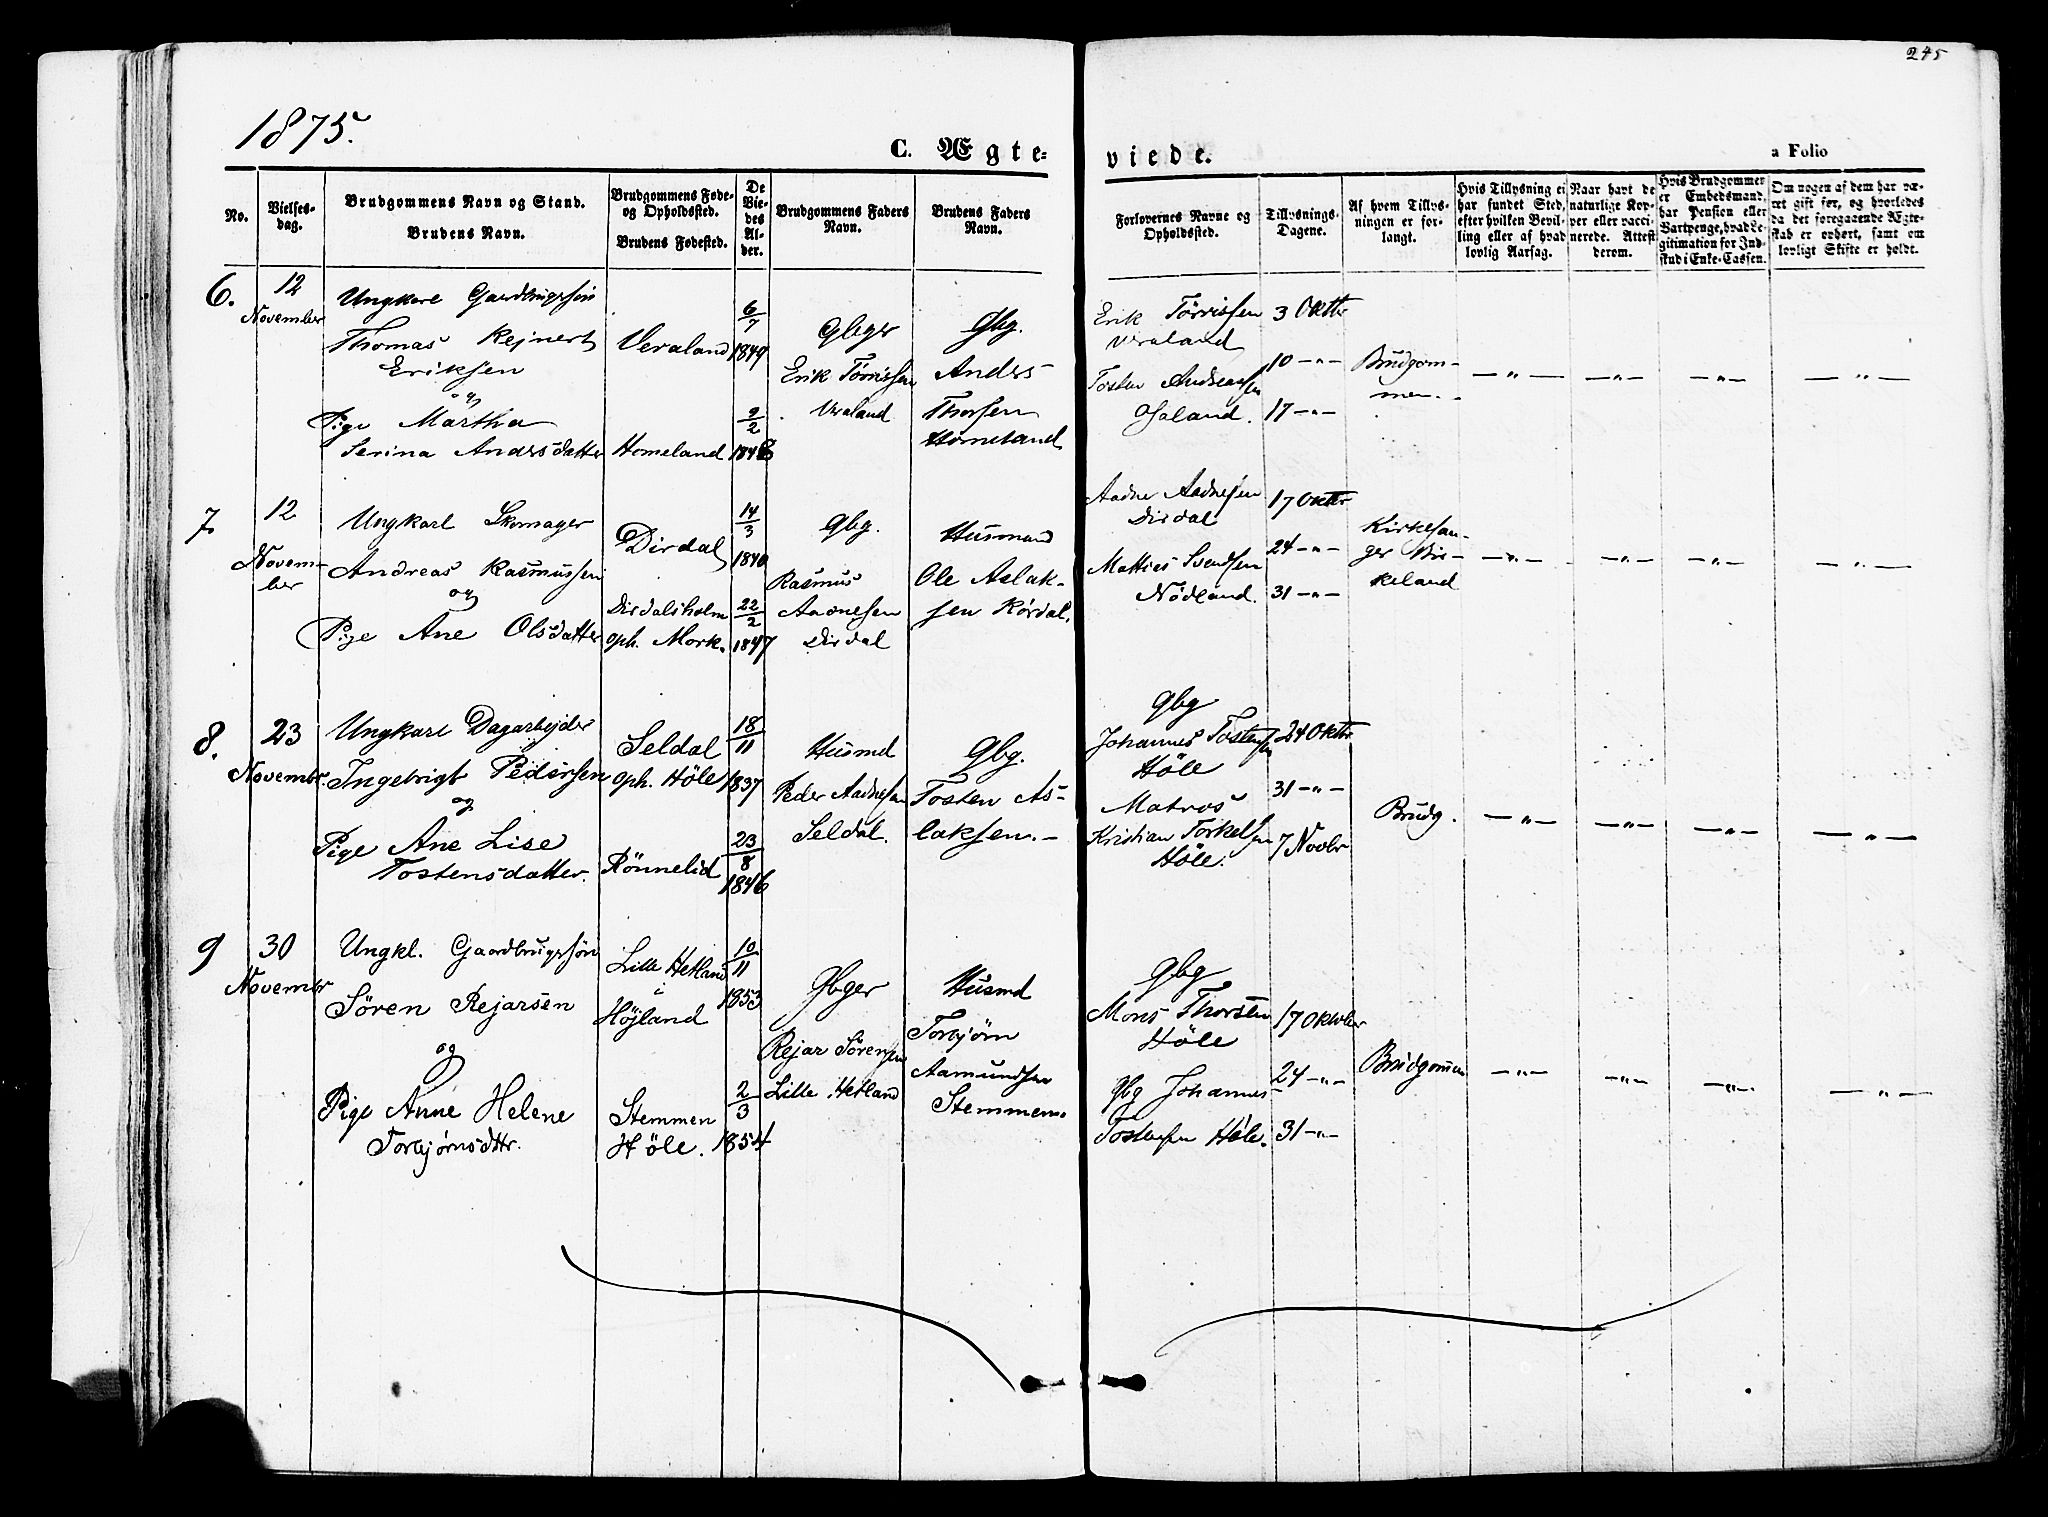 245
1875.
C. Ægte=
viede.
a Folio
No.
Vielses-
dag.
Brudgommens Navn og Stand.
Brudens Navn.
Brudgommens Føde-
og Opholdssted.
Brudens Fødested.
De
Vie-
des
Al-
der.
Brudgommens Faders
Navn.
Brudens Faders
Navn.
Forlovernes Navne og
Opholdssted.
Tillysnings-
Dagene.
Af hvem Tillys-
ningen er for-
langt.
Hvis Tillysning ei
har fundet Sted,
efter hvilken Bevil-
ling eller af hvad
lovlig Aarsag.
Naar havt de
naturlige Kop-
per eller vacci-
nerede. Attest
derom.
Hvis Brudgommen
er Embedsmand,
har Pension eller
Vartpenge, hvad Le-
gitimation for Ind-
skud i Enke-Cassen.
Om nogen af dem har væ-
ret gift før, og hvorledes
da det foregaaende Ægte-
skab er ophørt, samt om
lovligt Skifte er holdt.
6.
12
November
Ungkarl Gaardbrugersøn
Thomas Rejnert
Eriksen
og
Pige Märtha
Serina Andersdatter
Veraland
Homeland
6/7
1849
9/2
1848
Gbger
Erik Törrissen
Veraland
Gbg.
Anders
Thorsen
Homeland
Erik Törrissen
Veraland
Tosten Andreassen
Osaland.
3 Oktbr
10 -"-
17 -"-
Brudgom-
men.
-"- -"- -"- -"-
7
12
Novem-
ber
Ungkarl Skomager
Andreas Rasmussen
og
Pige Ane Olsdatter
Dirdal
Dirdalsholm
oph. Mork.
14/3
1840
22/2
1847
Gbg.
Rasmus
Aadnesen
Dirdal
Husmand
Ole Aslak-
sen Rördal.
Aadne Aadnesen
Dirdal
Mattias Svendsen
Nödland.
17 Oktbr
24 -"-
31 -"-
Kirkesan-
ger Bir-
keland
-"- -"- -"- -"-
8.
23
Novembr.
Ungkarl Dagarbejder
Ingebrigt Pedersen
og
Pige Ane Lise
Tostensdatter.
Seldal
oph. Höle
Rönnelid
18/11
1837
23/8
1846
Husmd
Peder Aadnesen
Seldal.
Gbg.
Tosten As-
laksen.-
Gbg
Johannes Tostensen
Höle
Matros
Kristian Torkelsen
Höle.
24 Oktbr.
31 -"-
7 Novbr
Brudg.
-"- -"- -"- -"-
9
30
Novembr
Ungkl. Gaardbrugersøn
Sören Rejarsen
og
Pige Anne Helene
Torbjørnsdttr.
Lille Hetland
i
Höjland
Stemmen
Höle.
10/11
1853
2/3
1854
Gbger
Rejar Sörensen
Lille Hetland
Husmd
Torbjörn
Aamundsen
Stemmen.
Gbg
Mons Thorsen
Höle
Gbg Johannes
Tostensen Höle.
17 Oktober
24 -"-
31 -"-
Brudgommen
-"- -"- -"- -"-